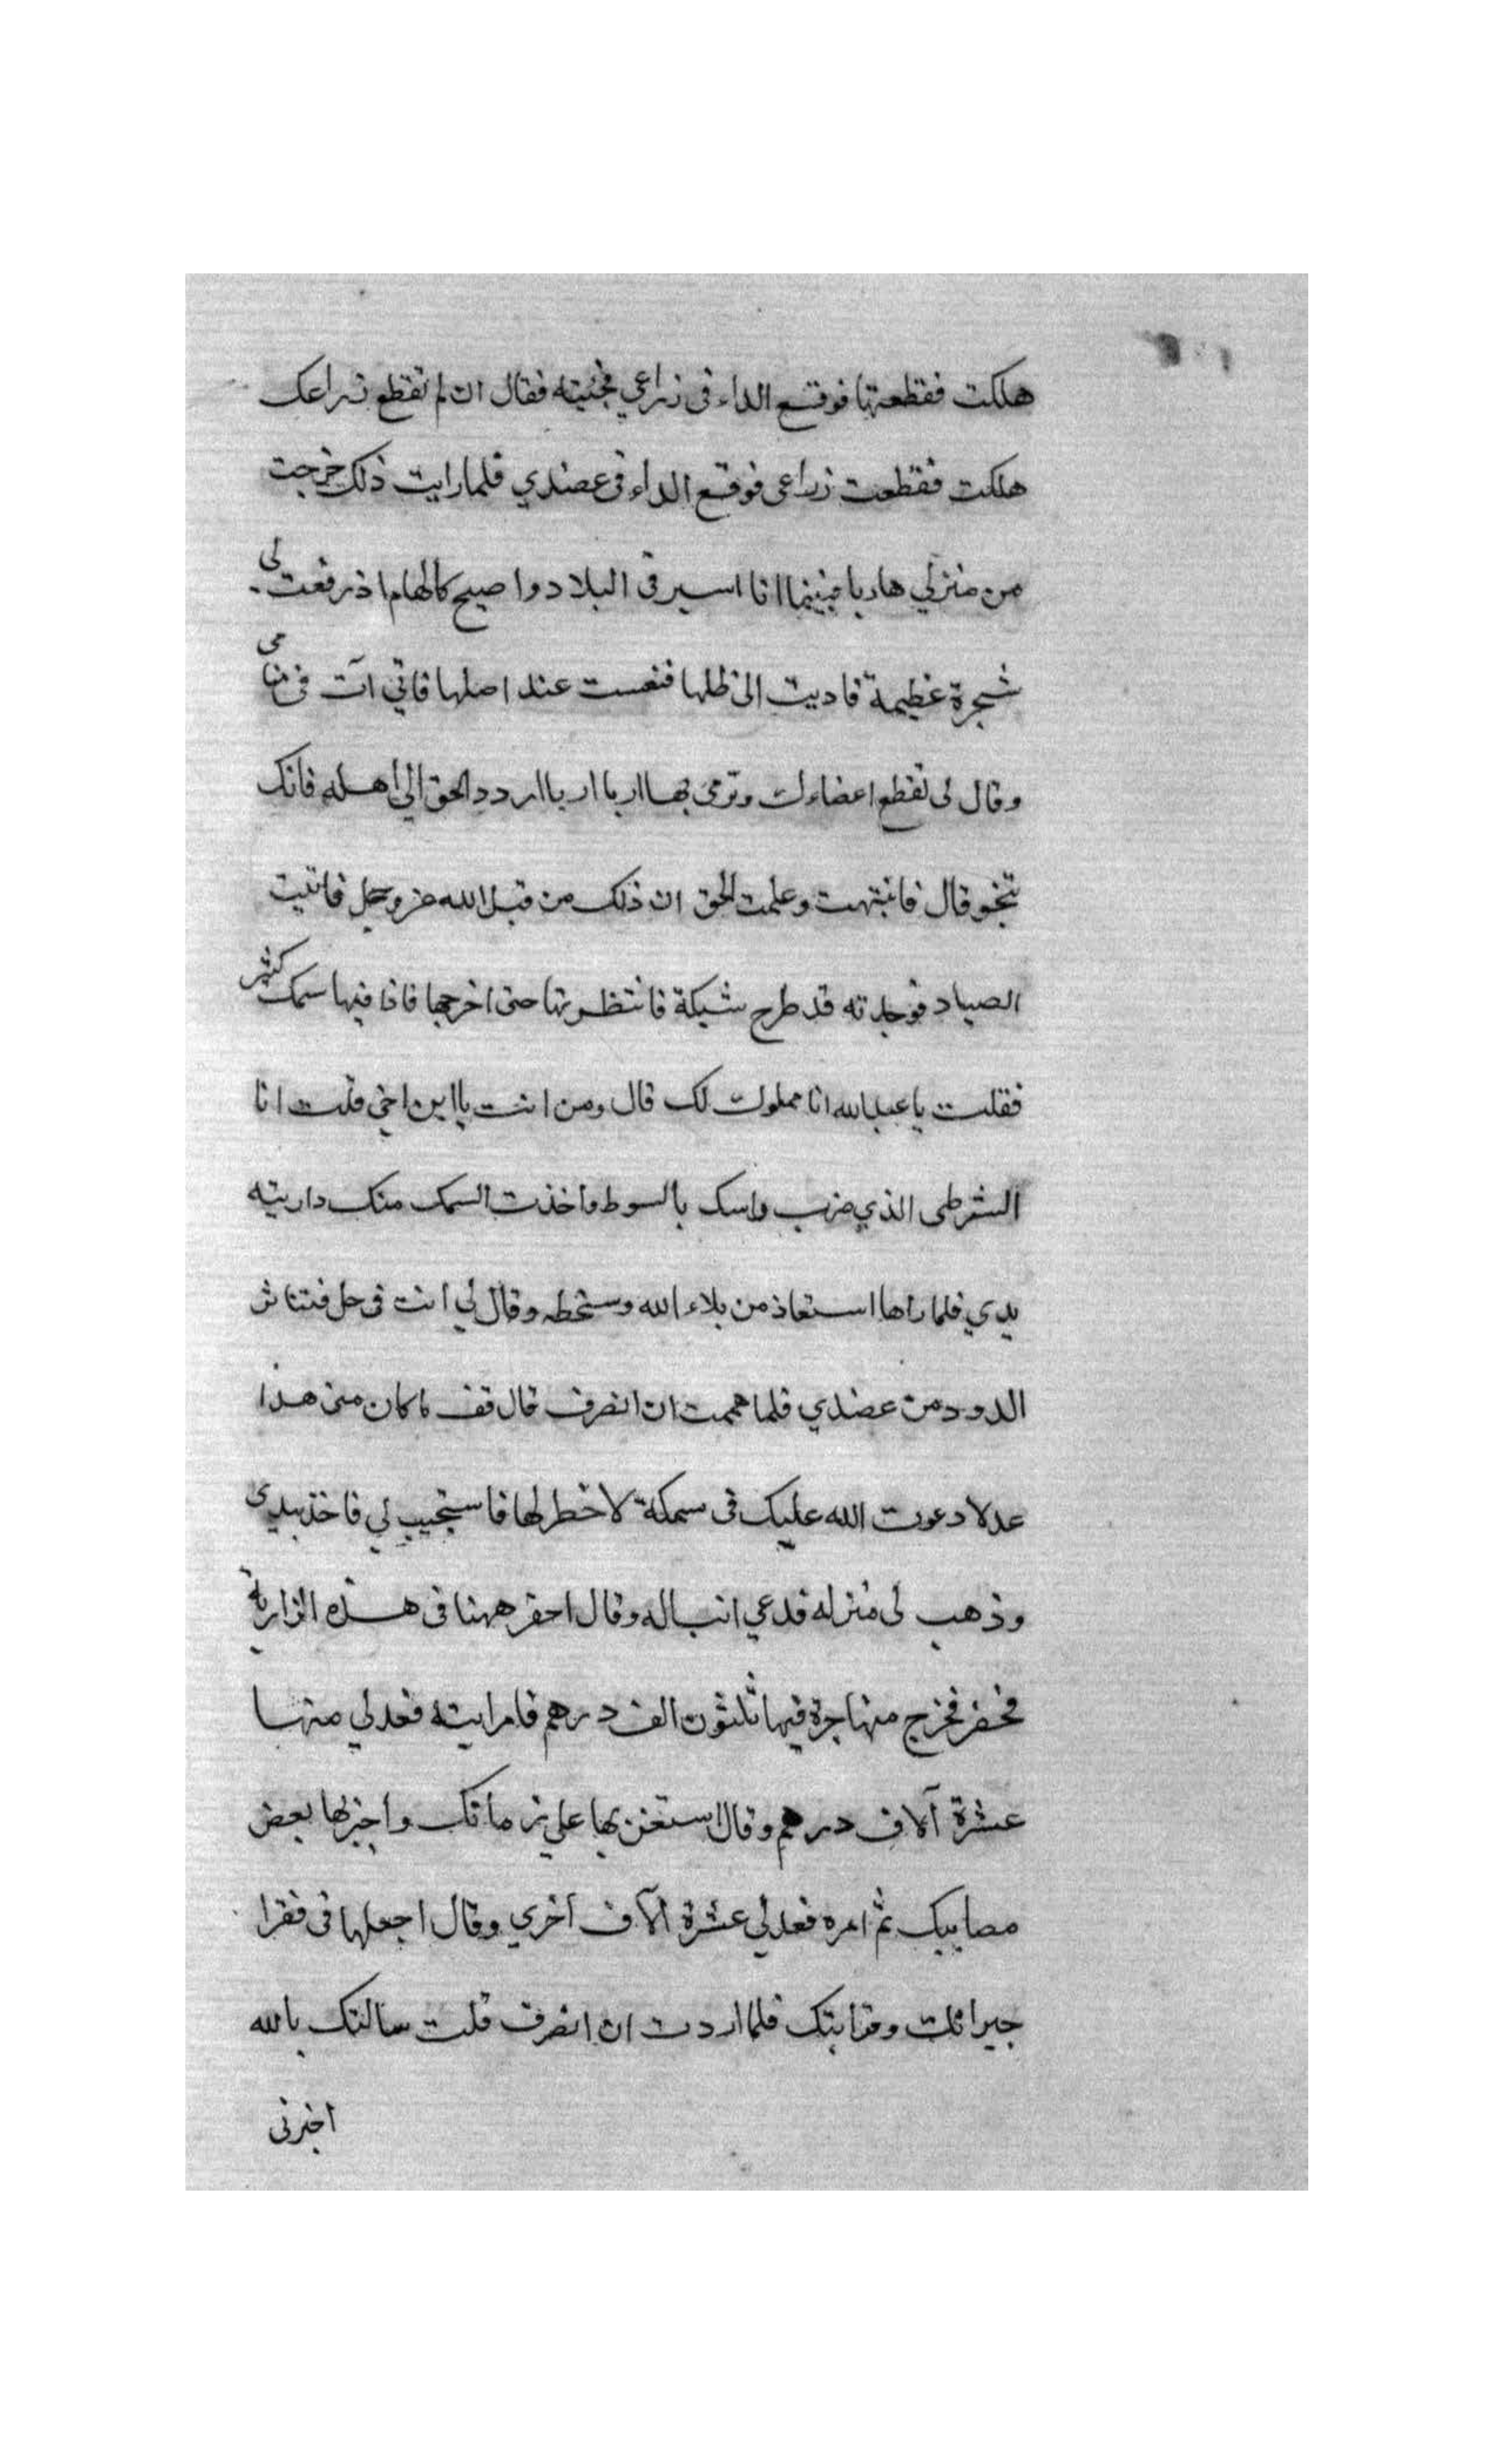 هلكت فقطعتها فوقع الداء فى زراعي فجئيته فقال ان لم تقطع زراعك
هلكت فقطعت زراعى فوقع الداء فى عضدي فلما رايت ذلك خرجت
من منزلي هاربا فبينما انا اسير فى البلاد واصيح كالهام اذ رفعت لى
شجرة عظيمة فاديت الى ظلها فنعست عند اصلها فاتي آت فى منامى
وقال لى تقطع اعضاءك وترمى بها اربا اربا اردد الحق الي اهله فانك
تنجو قال فانتبهت وعلمت الحق ان ذلك من قبل الله عز وجل فاتيت
الصياد فوجدته قد طرح شبكة فانتظرتها حتى اخرجها فاذا فيها سمك كثير
فقلت يا عبد الله انا مملوك لك قال ومن انت يا ابن اخي قلت انا
الشرطى الذي ضرب راسك بالسوط واخذت السمك منك واريته
يدي فلما راها استعاذ من بلاء الله وسخطه وقال لي انت فى حل فتناثر
الدود من عضدي فلما هممت ان انصرف قال قف ما كان منى هذا
عدلا دعوت الله عليك فى سمكة لا خطر لها فاستجيب لي فاخذ بيدى
وذهب لى منزله فدعي انبا له وقال احفر ههنا فى هذه الزارية
فحفر فخرج منها جرة فيها ثلثون الف درهم فامر ابنه فعد لي منها
عشرة آلاف درهم وقال استغن بها علي زمانك واجبر بها بعض
مصايبك ثم امره فعد لي عشرة آلاف أخري وقال اجعلها فى فقرا
جيرانك وقرابتك فلما اردت ان انصرف قلت سالتك بالله
اخبرنى